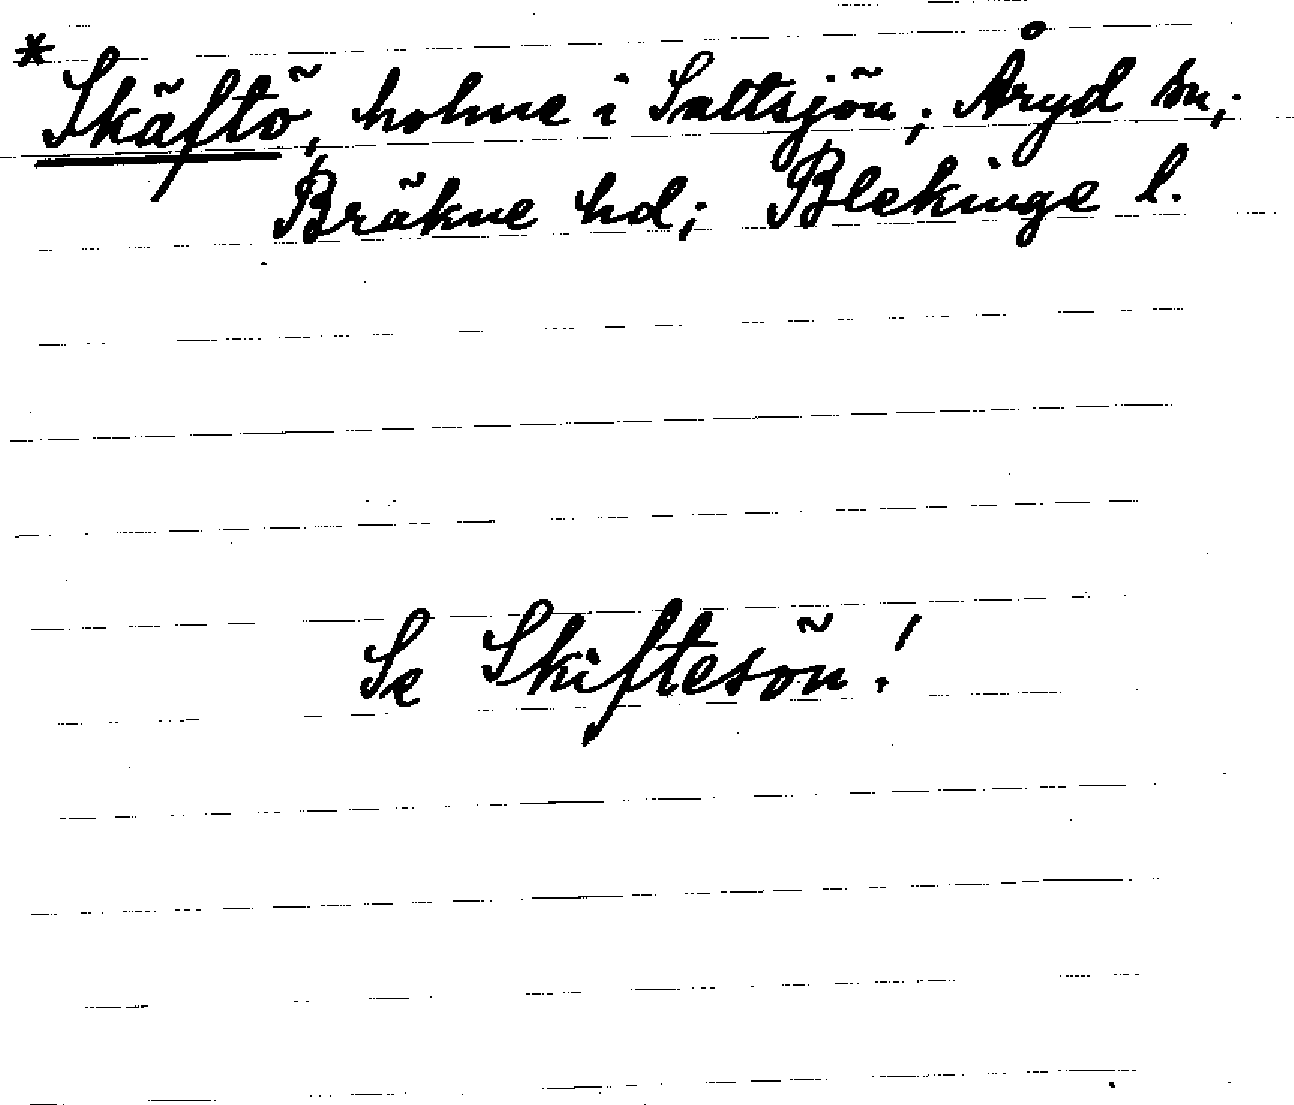 *Skäftö, holme i Saltsjön; Åryd sn;
Bräkne hd; Blekinge l.
Se Skiftesön!